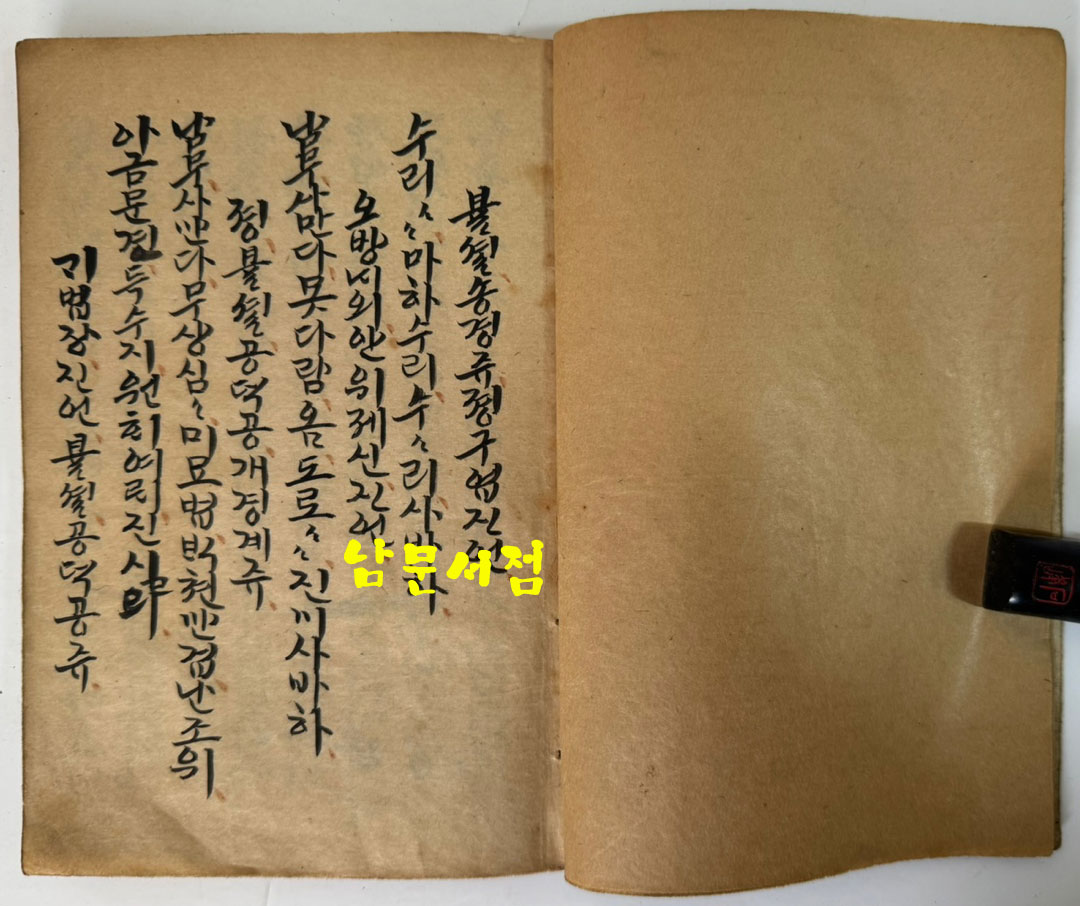 불셜송경쥬졍구업진언
수리〃마하수리수〃리사바하
오방내외안위제신진언
남무삼만다못다람옴도로〃사바하
졍불셜공덕공개경계쥬
남무사만다무상심〃미묘법박쳔만겁난조위
아금문견득수지원회여
기법장진언불셜공덕공쥬
남문서점